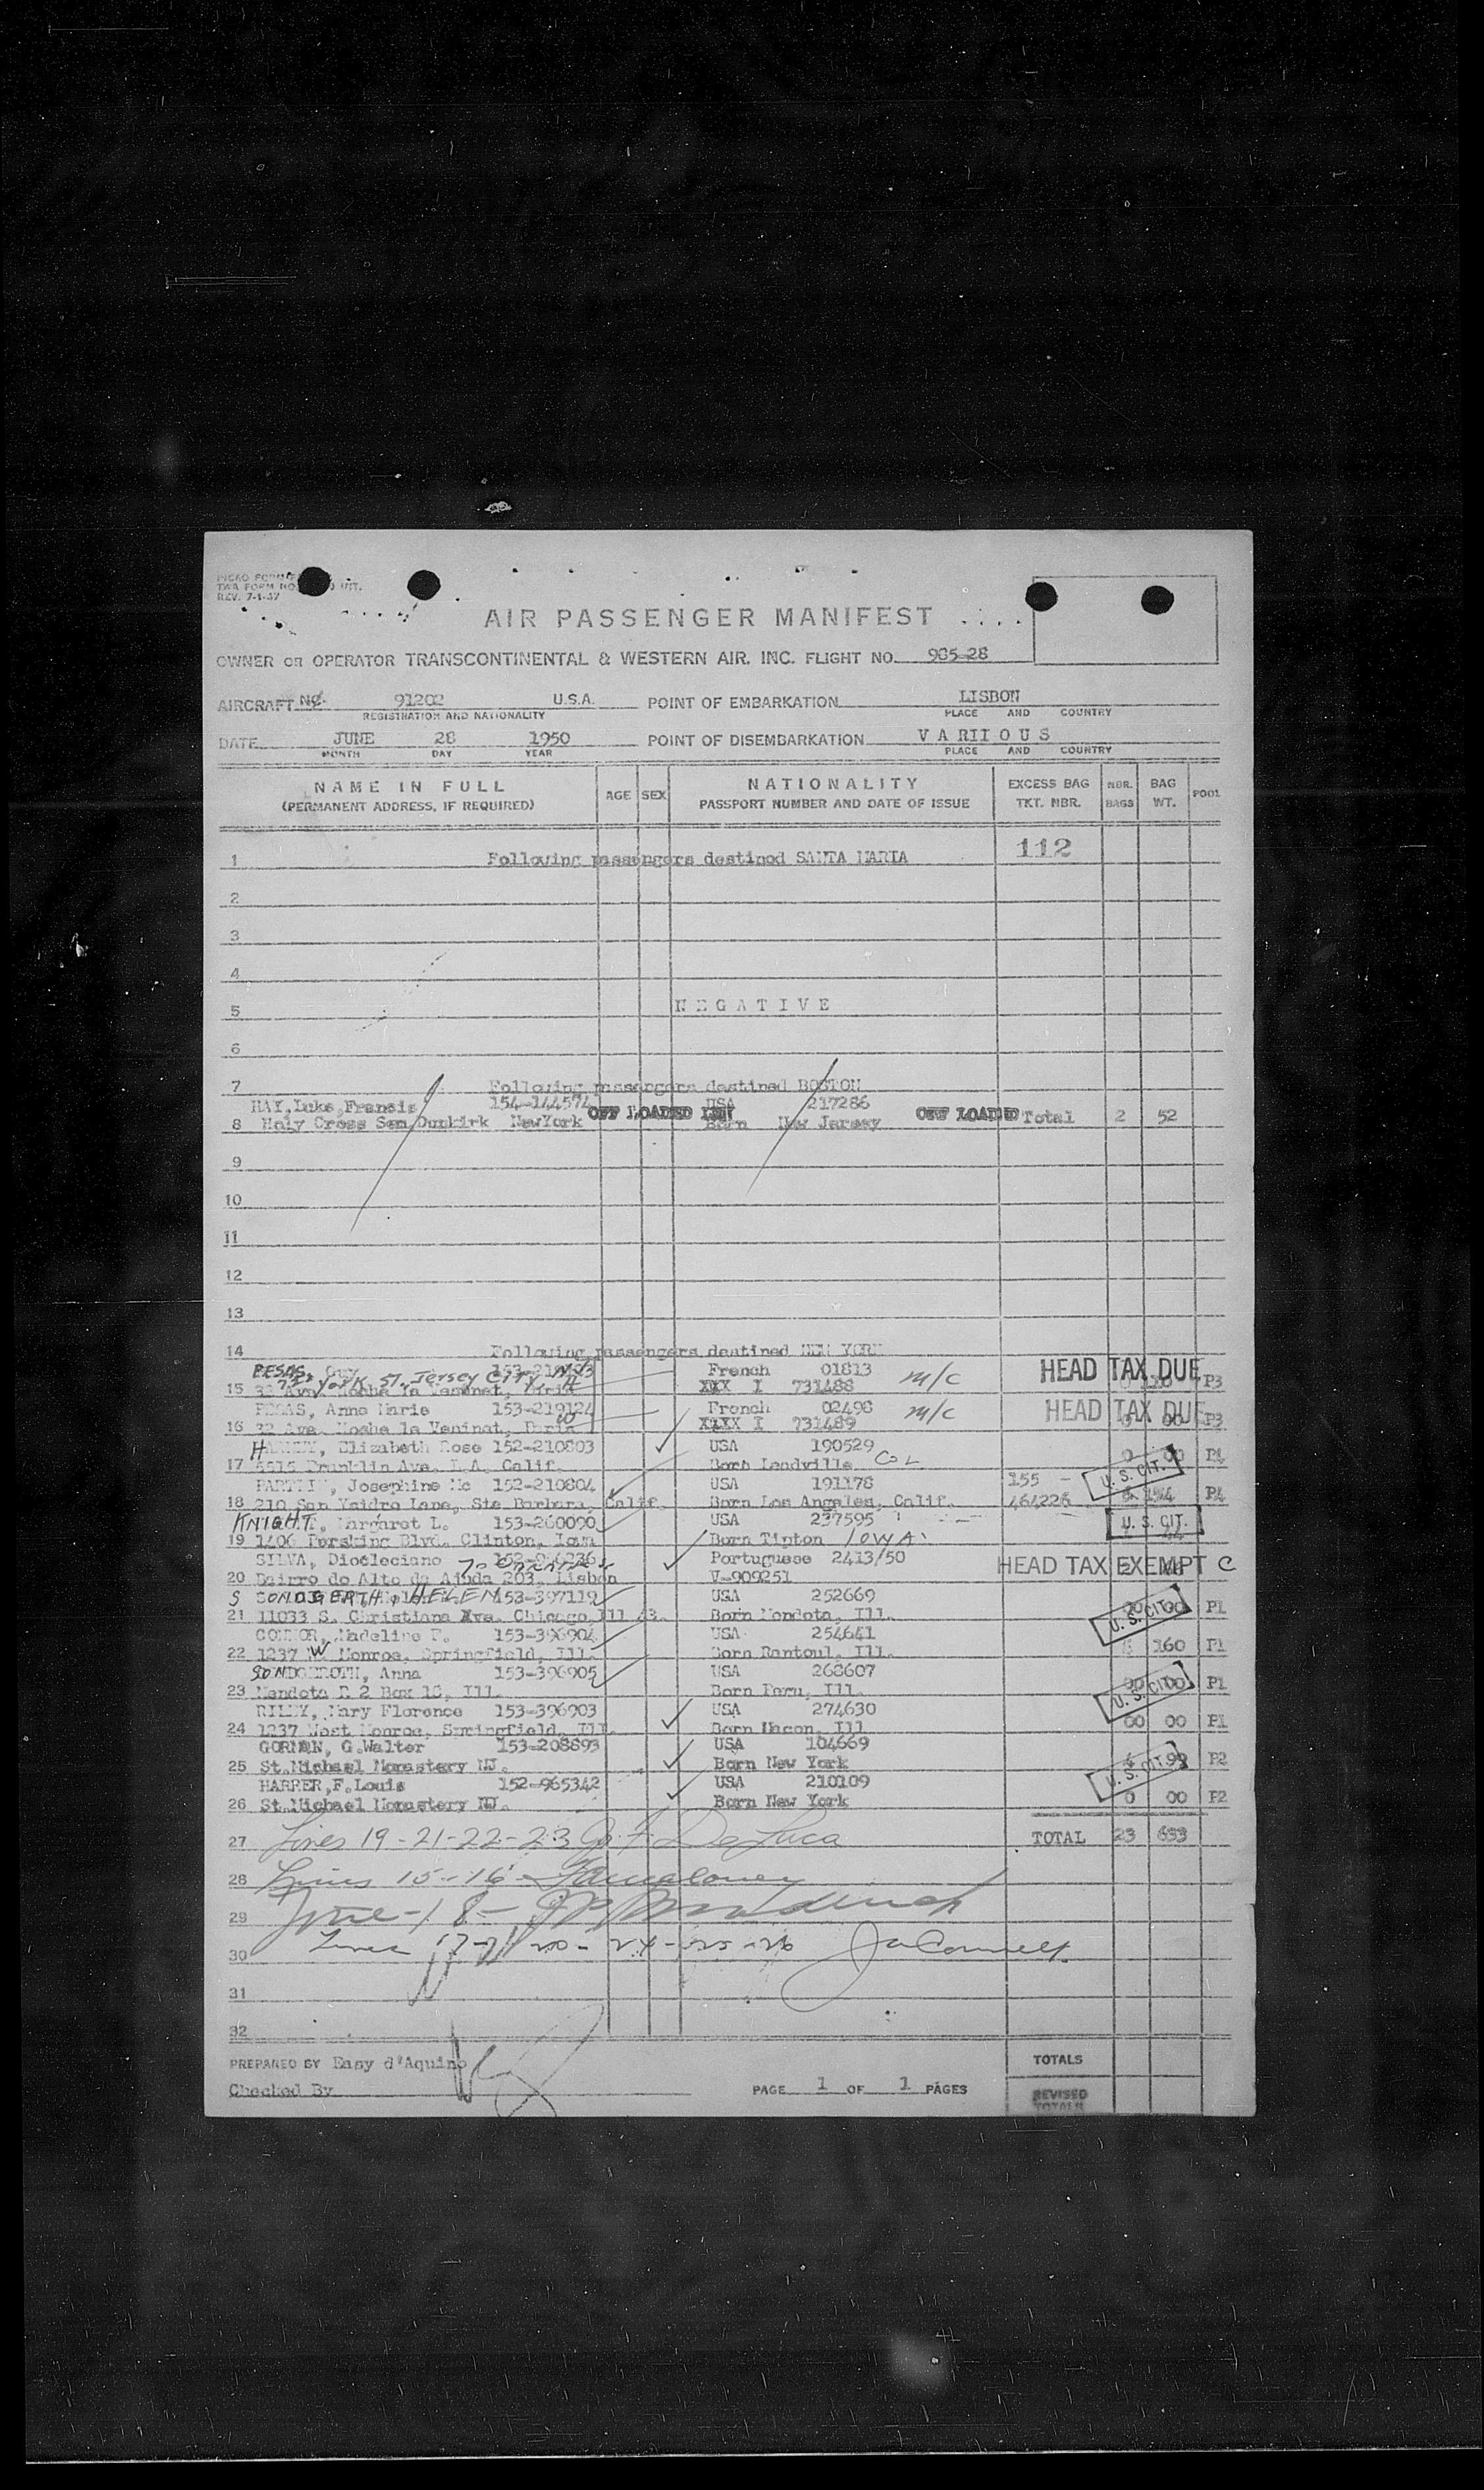 PICAO FORM
TWA FORM NO. INT.
REV. 7-1-47
AIR PASSENGER MANIFEST
OWNER OR OPERATOR TRANSCONTINENTAL & WESTERN AIR. INC. FLIGHT NO. 905-28
AIRCRAFT NO. 91202 U.S.A. POINT OF EMBARKATION LISBON
REGISTRATION AND NATIONALITY PLACE AND COUNTRY
DATE JUNE 28 1950 POINT OF DISEMBARKATION V A R I I O U S
MONTH DAY YEAR PLACE AND COUNTRY
NAME IN FULL AGE SEX NATIONALITY EXCESS BAG NBR. BAG POOL
(PERMANENT ADDRESS, IF REQUIRED) PASSPORT NUMBER AND DATE OF ISSUE TKT. NBR. BAGS WT.
1 Following passengers destined SANTA MARIA 112
2
3
4
5 N E G A T I V E
6
7 Following passengers destined BOSTON
HAY, Luke, Francis 154-144574 USA 217286
8 Holy Cross Sem Dunkirk NewYork OFF LOADED Born New Jersey OFF LOADED Total 2 52
9
10
11
12
13
14 Following passengers destined NEW YORK
PEGAS, Guy French 01813 m/c HEAD TAX DUE
York ST. Jersey City N.J.
15 XXX I 731488 P3
PEGAS, Anne Marie 153-219124 French 02498 m/c HEAD TAX DUE
16 32 Ave. Paris XXXX I 731489 P3
Elizabeth Rose 152-210803 USA 190529
17 5515 Franklin Ave. L.A, Calif. Born Leadville COL 0 00 P1
Josephine Mc 152-210804 USA 191178 155 - U.S. CIT.
18 210 San Ysidro Lane, Sta Barbara, Calif. Born Los Angeles, Calif. 464226 P4
KNIGHT, Margaret L. 153-260090 USA 237595 U.S. CIT.
19 1406 Pershing Blvd. Clinton, Iowa Born Tipton IOWA
SILVA, Diocleciano Portuguese 2413/50 HEAD TAX EXEMPT C
20 Bairro do Alto da Ajuda 203, Lisbon V-909251
S ONDGERTH, HELEN 153-397119 USA 252669
21 11033 S. Christiana Ave. Chicago, Ill 43. Born Mendota, Ill. 00 00 U.S. CIT. P1
CONNOR, Madeline F. 153-396904 USA 254641
22 1237 W Monroe, Springfield, Ill. Born Rantoul, Ill. 160 P1
SONDGEROTH, Anna 153-396905 USA 268607
23 Mendota R 2 Box 18, Ill. Born Peru, Ill. 00 00 U.S. CIT. P1
RILEY, Mary Florence 153-396903 USA 274630
24 1237 West Monroe, Springfield, Ill. Born Macon, Ill 00 00 P1
GORMAN, G.Walter 153-208893 USA 104669
25 St.Michael Monastery NJ. Born New York U.S. CIT. P2
HARRER,F.Louis 152-965342 USA 210109
26 St.Michael Monastery NJ. Born New York 0 00 P2
27 Lines 19-21-22-23 De Luca TOTAL 23 633
28 Lines 15-16
29 Line - 18 -
30 Lines 24-25-26
31
32
PREPARED BY Easy d'Aquino TOTALS
Checked By PAGE 1 OF 1 PAGES REVISED
TOTALS